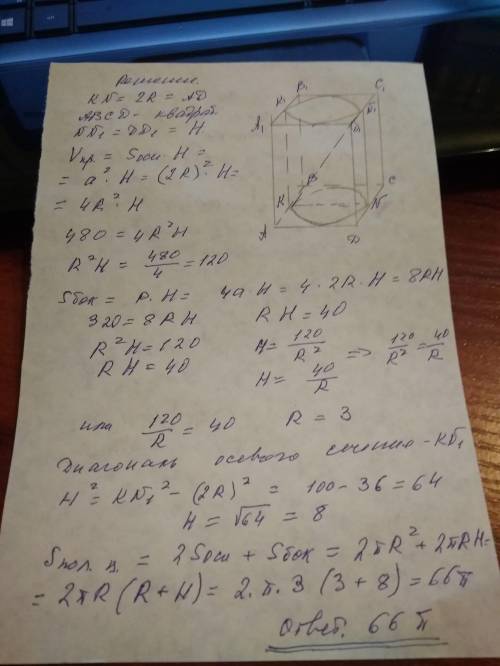 Решение.
KN = 2R = AD
ABCD - квадрат
NN₁ = DD₁ = H
Vпр. = Sосн · H =
= a² · H = (2R)² · H =
= 4R² · H
480 = 4R²H
R²H = 480/4 = 120
Sбок = P · H = 4a H = 4 · 2R · H = 8RH
320 = 8RH
RH = 40
R²H = 120
RH = 40
H = 120/R²
H = 40/R
=> 120/R² = 40/R
или 120/R = 40
R = 3
Диагональ осевого сечения - KN₁
H² = KN₁² - (2R)² = 100 - 36 = 64
H = √64 = 8
Sпол. ц. = 2Sосн + Sбок = 2πR² + 2πRH =
= 2πR (R + H) = 2 · π · 3 (3 + 8) = 66π
Ответ. 66 π
K₁
B₁
C₁
A₁
N₁
D₁
B
C
K
N
A
D